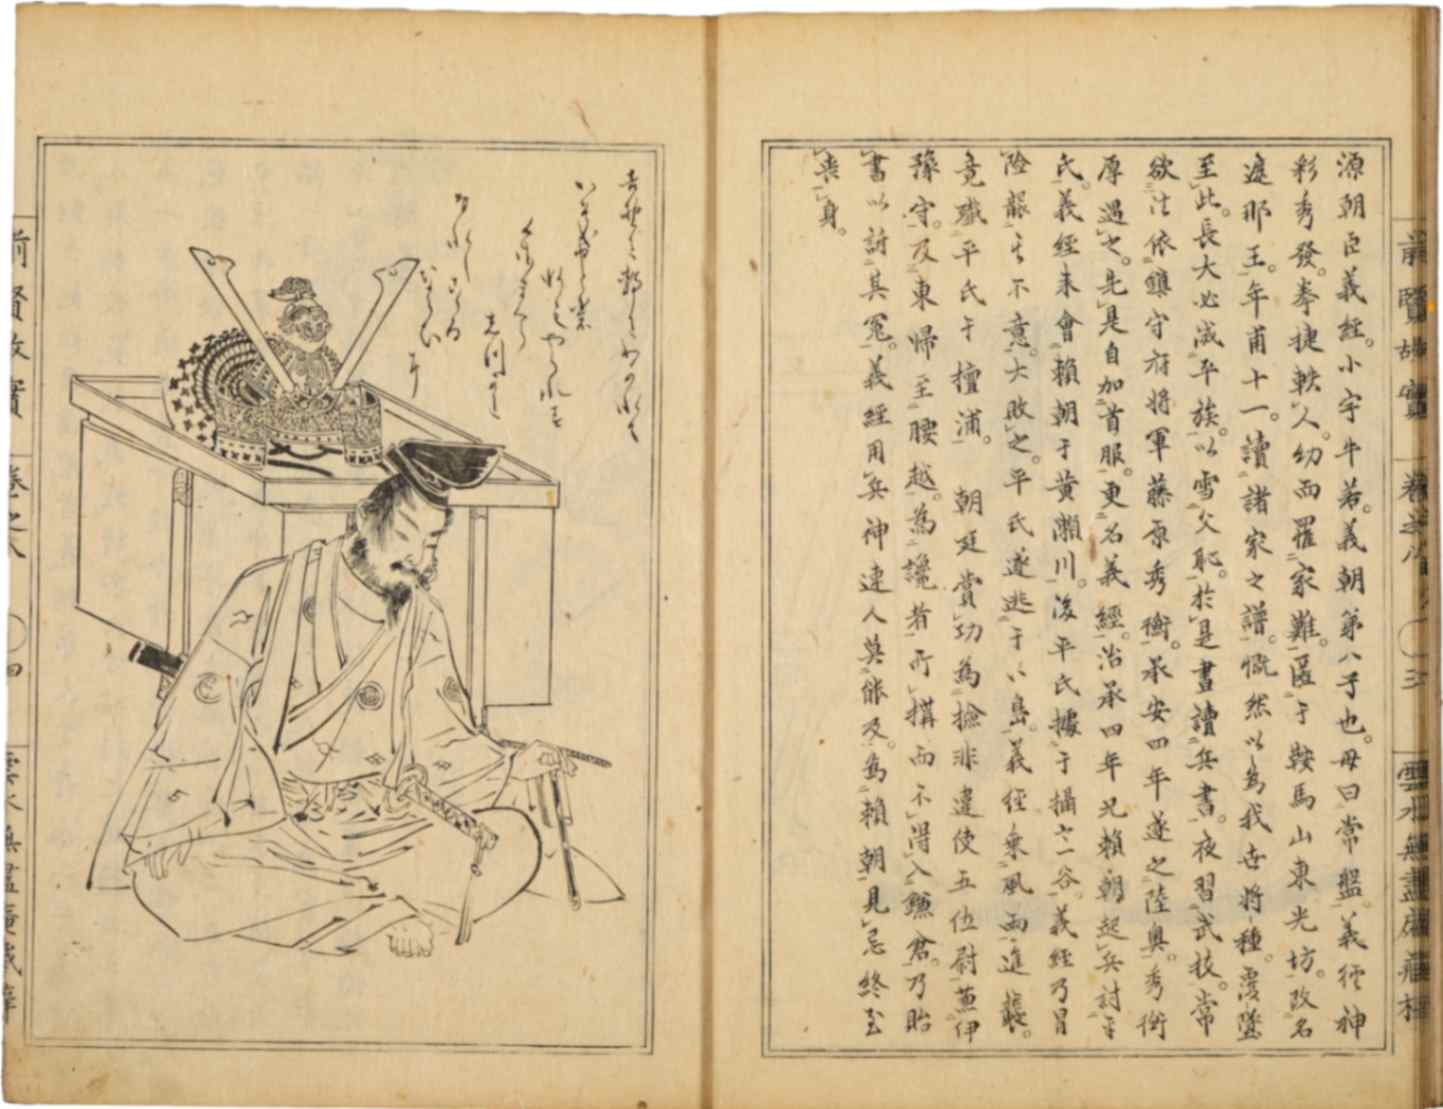 源朝臣義經。小字牛若。義朝第八子也。母曰常盤。義經神
彩秀發。拳捷軼人。幼而罹家難。匿于鞍馬山東光坊。改名
遮那王。年甫十一。讀諸家之譜。慨然以為我世將種。覆墜
至此。長大必滅平族。以雪父恥。於是晝讀兵書。夜習武技。常
欲往依鎮守府將軍藤原秀衡。承安四年遂之陸奥。秀衡
厚遇之。先是自加首服。更名義經。治承四年兄賴朝起兵討平
氏。義經来會賴朝于黄瀬川。後平氏據于攝之一谷。義經乃冒
險襲其不意。大敗之。平氏遂逃于八島。義經乗風雨進襲。
竟殱平氏于檀浦。朝廷賞功為撿非違使五位尉兼伊
豫守。及東帰至腰越。為讒者所搆而不得入鎌倉。乃貽
書以訴其冤。義經用兵神速人莫能及。為賴朝見忌終至
喪身。
前賢故實
卷之八
三
雲水無盡庵藏梓
前賢故實
卷之八
四
雲水無盡庵藏梓